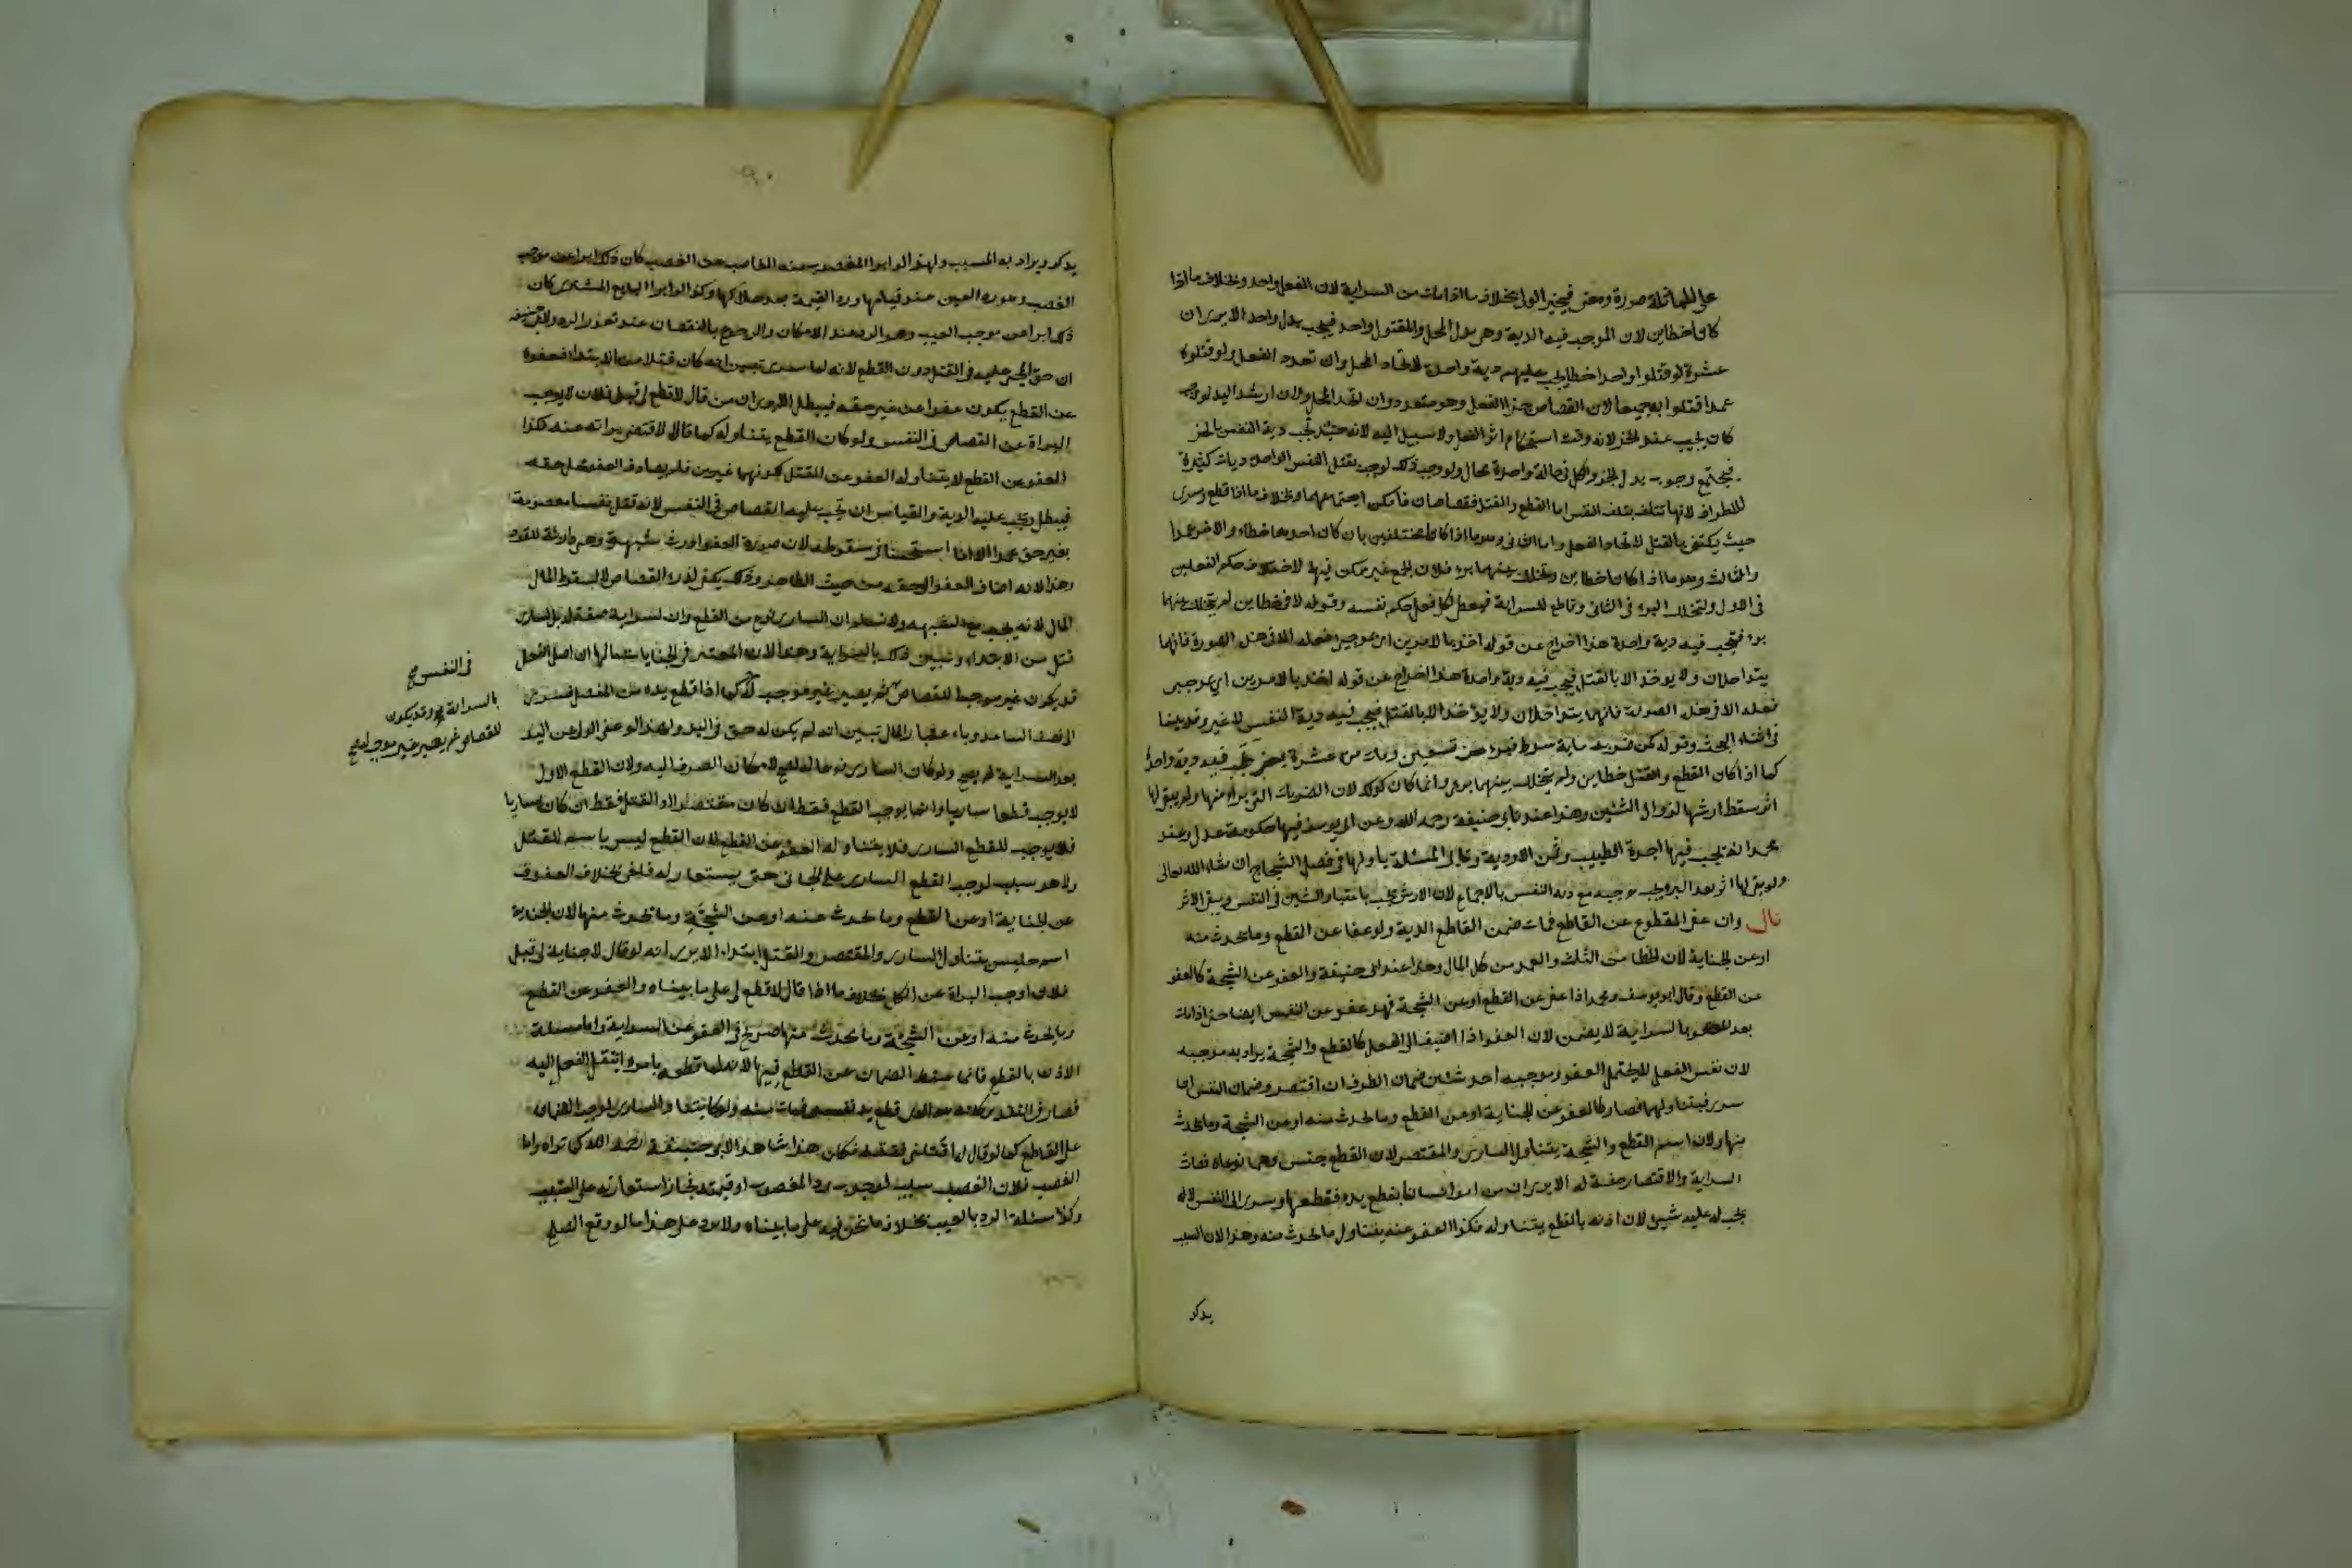 على المماثلة صورة ومعنى فيخير الولى بخلاف ما اذا مات من السراية لان الفعل واحد وبخلاف ما اذا
كانا خطاين لان الموجب فيه الدية وهى بدل المحل والمقتول واحد فيجب بدل واحد الا يرى ان
عشرة لو قتلوا واحدا خطا يجب عليهم دية واحدة لاتحاد المحل وان تعدد الفعل ولو قتلوه
عمدا قتلوا به جميعا لان القصاص جزاء الفعل وهو متعدد وان اتحد المحل ولان ارش اليد لو وجب
كان يجب عند الحز لانه وقت استحكام اثر الفعل ولا سبيل اليه لانه حينئذ تجب دية النفس بالحز
فيجتمع وجوب بدل الجزء والكل فى حالة واحدة محال ولو وجب ذلك لوجب بقتل النفس الواحدة ديات كثيرة
للاطراف لانها تتلف بتلف النفس اما القطع والقتل قصاصان فامكن اجتماعهما وبخلاف ما اذا قطع وسرى
حيث يكتفى بالقتل لاتحاد الفعل واما الثانى وهو ما اذا كانا مختلفين بان كان احدهما خطاء والاخر عمدا
والثالث وهو ما اذا كانا خطاين وتخلل بينهما برء فلان الجمع غير ممكن فيها لاختلاف حكم الفعلين
فى الاول ولتخلل البرء فى الثانى وقاطع للسراية فيعطى لكل فعل حكم نفسه وقوله لا فى خطاين لم يتخلل بينهما
برء فيجب فيه دية واحدة هذا اخراج عن قوله اخذ بالامرين اى بموجب فعله الا فى هذه الصورة فانهما
يتداخلان ولا يوخذ الا بالقتل فيجب فيه دية واحدة هذا اخراج عن قوله اخذ بالامرين اى بموجبى
فعله الا فى هذه الصورة فانهما يتداخلان ولا يؤخذ الا بالقتل فيجب فيه دية النفس لا غير وقد بينا
فى اثناء البحث وقوله كمن ضربه ماية سوط فبرء من تسعين ومات من عشرة يعنى تجب فيه دية واحدة
كما اذا كان القطع والقتل خطاين ولم يتخلل بينهما برء وانما كان كذلك لان الضربات التى برا منها ولم يبق لها
اثر سقط ارشها لزوال الشين وهذا عند ابى حنيفة رحمه الله وعن ابى يوسف فيها حكومة عدل وعند
محمد انه تجب فيها اجرة الطبيب وثمن الادوية وتاتى المسئلة باولها فى فصل الشجاج ان شاء الله تعالى
ولو بقى لها اثر بعد البرء يجب موجبه مع دية النفس بالاجماع لان الارش يجب باعتبار الشين فى النفس وببقى الاثر
قال وان عفى المقطوع عن القاطع فمات ضمن القاطع الدية ولو عفا عن القطع وما يحدث منه
او عن الجناية لان الخطا من الثلث والعمد من كل المال وهذا عند ابى حنيفة والعفو عن الشجة كالعفو
عن القطع وقال ابو يوسف ومحمد اذا عفى عن القطع او عن الشجة فهو عفو عن النفس ايضا حتى اذا مات
بعد العفو بالسراية لا يضمن لان العفو اذا اضيف الى الفعل كالقطع والشجة يراد به موجبه
لان نفس الفعل لا يحتمل العفو وموجبه احد شيئين ضمان الطرف ان اقتصر وضمان النفس اذا
سرى فيتناولهما فصار كالعفو عن الجناية او عن القطع وما يحدث منه او عن الشجة وما يحدث
منها ولان اسم القطع والشجة يتناول السارى والمقتصر لان القطع جنس وهما نوعاه فصات
السراية والاقتصار صفة له الا يرى ان من امر انسانا بقطع يده فقطعها وسرى الى النفس لا
يجب له عليه شيئ لان اذنه بالقطع يتناوله فكذا العفو عنه يتناول ما يحدث منه وهذا لان السبب
يذكر
يذكر ويراد به المسبب ولهذا لو ابرا المغصوب منه الغاصب عن الغصب كان ذلك ابرا عن موجب
الغصب وهو رد العين عند قيامها ورد القيمة بعد هلاكها وكذا لو ابرا البايع المشترى كان
ذلك ابرا عن موجب العيب وهو الرد عند الامكان والرجوع بالنقصان عند تعذر الرد ولابى حنيفه
ان حق المجنى عليه فى القتل دون القطع لانه لما سرى تبين انه كان قتلا من الابتداء فعفوه
عن القطع يكون عفوا عن غير حقه فيبطل الا يرى ان من قال لا قطع لى قبل فلان لا يوجب
البراة عن القصاص فى النفس ولو كان القطع يتناوله كما قالا لاقتضى براته عنه فكذا
العفو عن القطع لا يتناوله العفو عن القتل لكونهما غيرين فلم يصادف العفو محل حقه
فيبطل وتجب عليه الدية والقياس ان تجب عليه القصاص فى النفس لانه قتل نفسا معصومة
بغير حق عمدا الا انا استحسنا فى سقوطه لان صورة العفو اورث شبهة وهى دارئة للقود
وهذا لانه اضاف العفو الى حقه من حيث الظاهر وذلك يكفى لدرء القصاص لا لسقوط المال
المال لانه يجب مع الشبهه ولا نسلم ان السارى نوع من القطع وان السراية صفة له بل السارى
قتل من الابتداء وتبين ذلك بالسراية وهذا لان المعتبر فى الجنايات مآلها لان اصل الفعل
قد يكون غير موجبا للقصاص ثم يصير غير موجب له كما اذا قطع يده من المفصل فسرى
الى نصف الساعد وباء عتبار المآل تبين انه لم يكن له حق فى اليد ولهذا لو عفى الولى عن اليد
بعد السراية لم يصح ولو كان السارى نوعا له لصح لامكان الصرف اليه ولان القطع الاول
لا يوجب قطعا ساريا وانما يوجب القطع فقط ان كان مقتصرا او القتل فقط ان كان ساريا
فلا يوجب للقطع السارى فلا يتناوله العفو عن القطع لان القطع ليس باسم للقتل
ولا هو سبب لوجب القطع السارى على الجانى حتى يستعار له فلغى بخلاف العفو
عن الجناية او عن القطع وما يحدث منه او عن الشجة وما يحدث منها لان الجناية
اسم جنس يتناول السارى والمقتصر والقتل ابتداء الا يرى انه لو قال لا جناية لى قبل
فلان اوجب البراة عن الكل بخلاف ما اذا قال لا قطع لى على ما بيناه والعفو عن القطع
وما يحدث منه او عن الشجة وما يحدث منها صريح فى العفو عن السراية واما مسئلة
الاذن بالقطع فانما سقط الضمان عن القاطع فيها لانه لما قطعه بامره انتقل الفعل اليه
على القاطع كما لو قال له اقتلنى فقتله فكان هذا شاهدا لابى حنيفة رحمه الله كما تراه واما
الغصب فلان الغصب سبب لوجوب رد المغصوب او قيمته فجاز استعارته على المسبب
وكذا مسئلة الرد بالعيب بخلاف ما نحن فيه على ما بيناه ولا يرد على هذا ما لو وقع الصلح
فى النفس صح
بالسراية وقد يكون
للقصاص ثم يصير غير موجب له صح